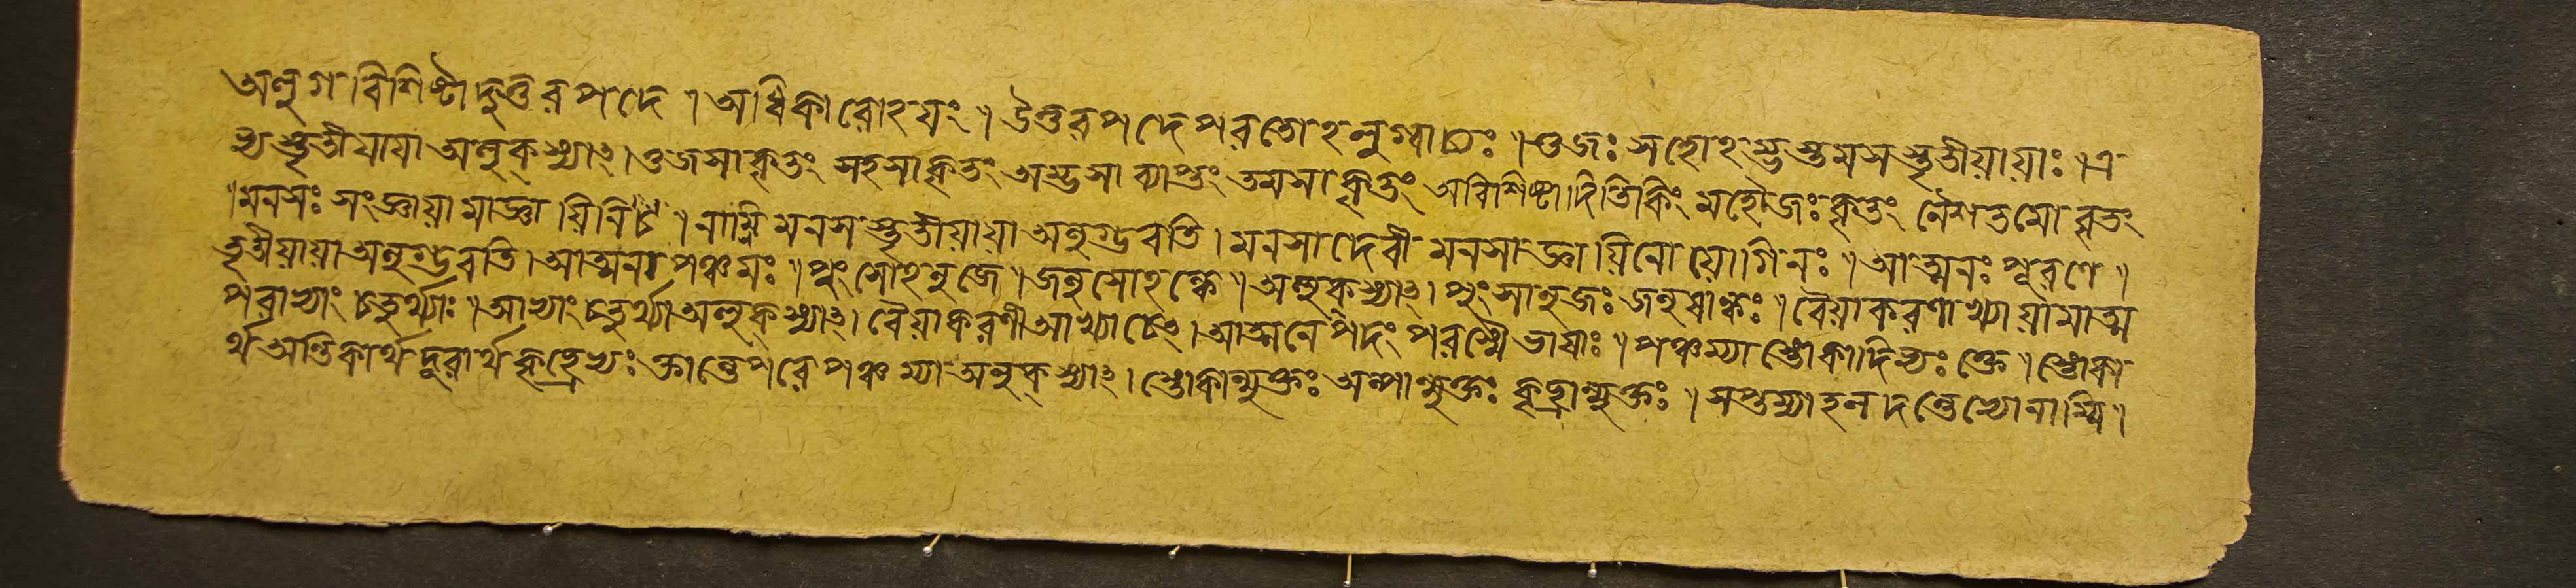 অলুগবিশিষ্টাদুত্তরপদে ॥ অধিকারোঽযং ॥ উত্তরপদেপরতোঽলুগ্বাচ্যঃ ॥ ওজঃসহোঽম্ভস্তমসস্তৃতীয়ায়াঃ । এ
ভ্যস্তৃতীয়ায়া অলুক্ স্যাৎ । ওজসাকৃতং সহসাকৃতং অম্ভসা ব্যাপ্তং তমসা কৃতং অবিশিষ্টাদিতিকিং মহৌজঃকৃতং নৈশতমোবৃতং
। মনসঃ সংজ্ঞায়ামাজ্ঞায়িনিচ ॥ নাম্নি মনসস্তৃতীয়ায়া অলুগ্ভবতি । মনসাদেবী মনসাজ্ঞায়িনো যোগিনঃ ॥ আত্মনঃ পূরণে ॥
তৃতীয়ায়া অলুগ্ভবতি । আত্মনা পঞ্চমঃ ॥ পুংসোঽনুজে । জনুসোঽন্ধে ॥ অলুক্ স্যাৎ । পুংসানুজঃ জনুষান্ধঃ ॥ বৈয়াকরণাখ্যায়ামাত্ম
পরাভ্যাং চতুর্থ্যাঃ ॥ আভ্যাং চতুর্থ্যা অলুক্ স্যাৎ । বৈয়াকরণী আখ্যা চেৎ । আত্মনেপদং পরস্মৈভাষাঃ ॥ পঞ্চম্যা স্তোকাদিভ্যঃ ক্তে ॥ স্তোকা
র্থ অন্তিকার্থ দূরার্থ কৃচ্ছ্রেভ্যঃ ক্তান্তে পরে পঞ্চম্যা অলুক্ স্যাৎ । স্তোকান্মুক্তঃ অল্পান্মুক্তঃ কৃচ্ছ্রান্মুক্তঃ ॥ সপ্তম্যা হলদন্তেভ্যো নাম্নি ॥